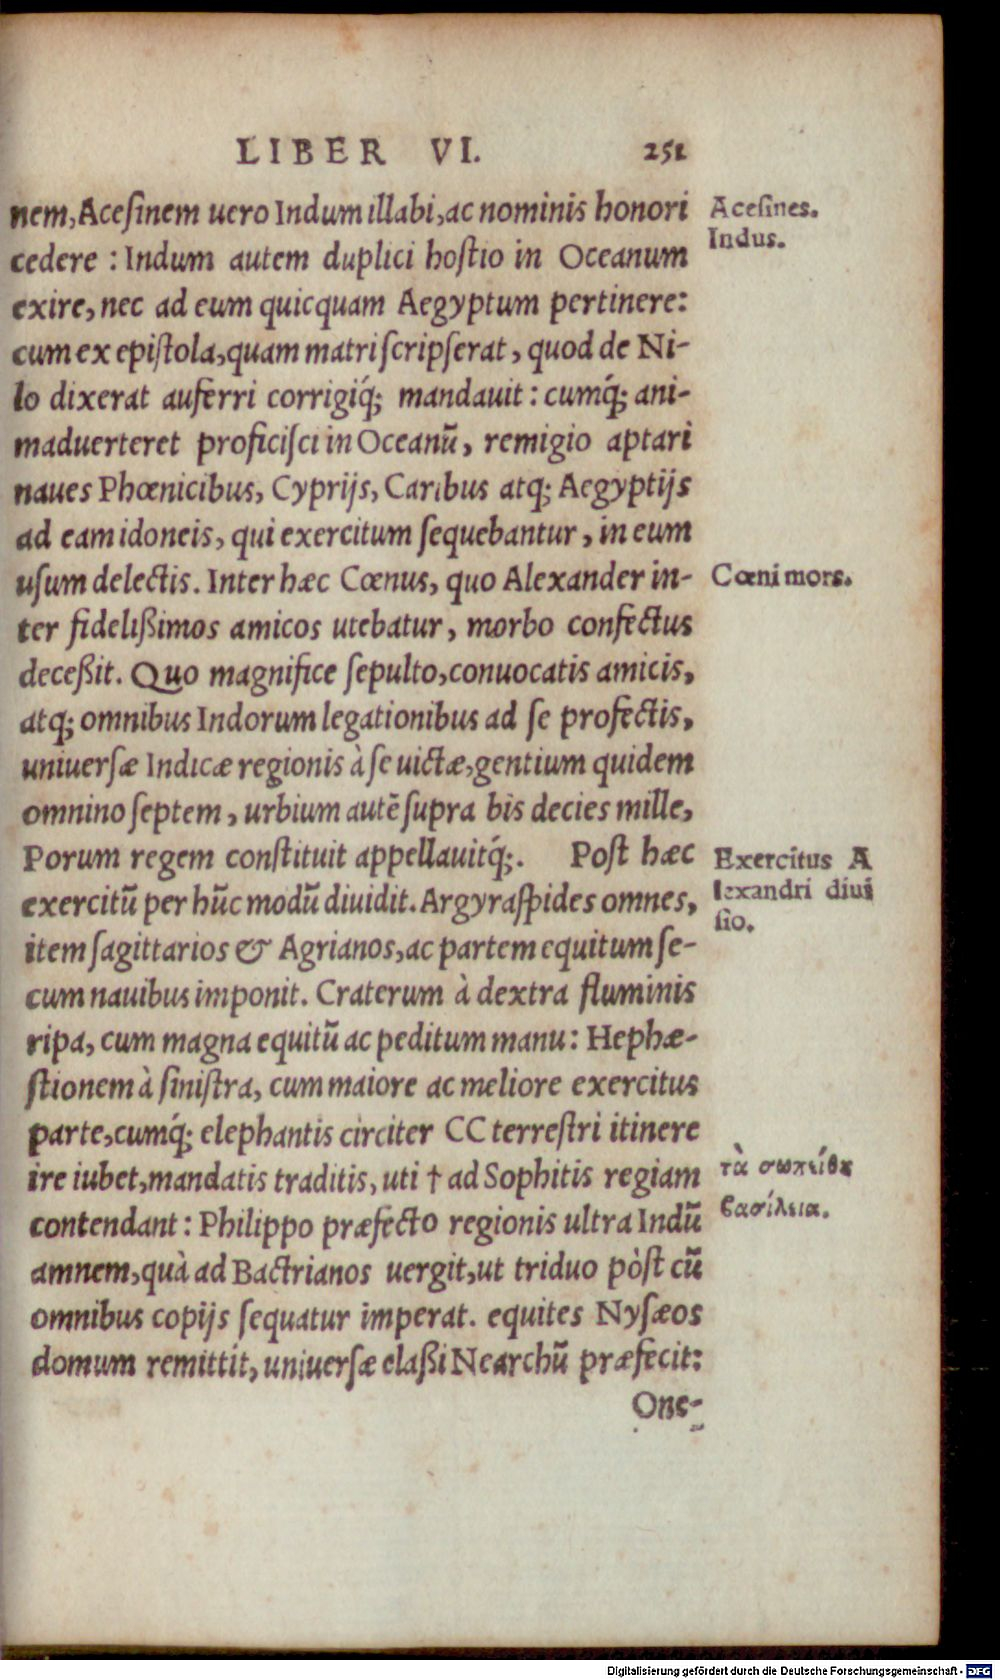 LIBER VI. 251
nem, Aceſinem uero Indum illabi, ac nominis honori
Aceſines.
cedere : Indum autem duplici hoſtio in Oceanum
Indus.
exire, nec ad eum quicquam Aegyptum pertinere:
cum ex epiſtola, quam matri ſcripſerat, quod de Ni-
lo dixerat auferri corrigiq́; mandauit : cumq́; ani-
maduerteret proficiſci in Oceanũ, remigio aptari
naues Phœnicibus, Cyprijs, Caribus atq; Aegyptijs
ad eam idoneis, qui exercitum ſequebantur, in eum
uſum delectis. Inter hæc Cœnus, quo Alexander in-
Cœni mors.
ter fidelißimos amicos utebatur, morbo confectus
deceßit. Quo magnifice ſepulto, conuocatis amicis,
atq; omnibus Indorum legationibus ad ſe profectis,
uniuerſæ Indicæ regionis à ſe uictæ, gentium quidem
omnino ſeptem, urbium autẽ ſupra bis decies mille,
Porum regem conſtituit appellauitq́;. Poſt hæc
Exercitus A
exercitũ per hũc modũ diuidit. Argyraſpides omnes,
lexandri diui
ſio.
item ſagittarios & Agrianos, ac partem equitum ſe-
cum nauibus imponit. Craterum à dextra fluminis
ripa, cum magna equitũ ac peditum manu: Hephæ-
ſtionem à ſiniſtra, cum maiore ac meliore exercitus
parte, cumq́; elephantis circiter CC terreſtri itinere
ire iubet, mandatis traditis, uti † ad Sophitis regiam
τὰ σωπείθȣ
contendant : Philippo præfecto regionis ultra Indũ
βασίλεια.
amnem, quà ad Bactrianos uergit, ut triduo pòſt cũ
omnibus copijs ſequatur imperat. equites Nyſæos
domum remittit, uniuerſæ claßi Nearchũ præfecit:
One-
Digitalisierung gefördert durch die Deutsche Forschungsgemeinschaft - DFG